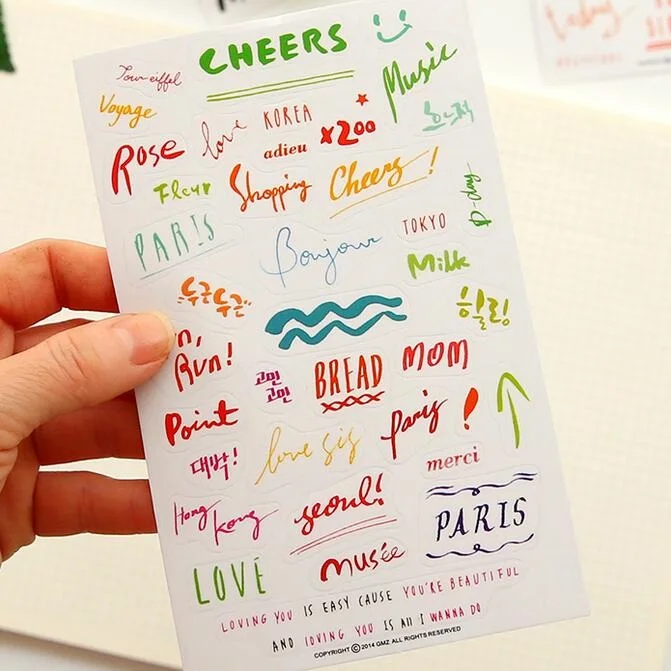 CHEERS
Tour eiffel
Music
Voyage
love
KOREA
x200
adieu
Rose
Fleur
Shopping
Cheers!
D-day
PARIS
Bonjour
TOKYO
Milk
두근두근
힐링
Run!
고민
고민
BREAD
MOM
Point
paris!
대박!
love sis
merci
Hong
kong
seoul!
PARIS
LOVE
musée
LOVING YOU IS EASY CAUSE YOU'RE BEAUTIFUL
AND LOVING YOU IS All I WANNA DO
COPYRIGHT © 2014 GMZ ALL RIGHTS RESERVED